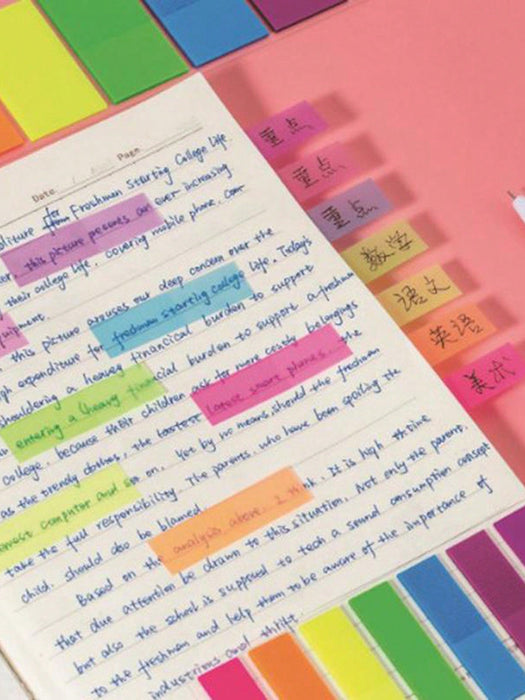 Date: Page
for Freshman Starting College Life.
diture from
er, this picture presents an ever increasing
their college life, covering mobile phone, com
uipment.
this picture aruses our deep concern over the
gh expenditure for freshman starting college life. Today's
shouldering a heaveg financical burden to support
entering a (heavg financial burden to support a freshman
college, because their children ask for more costly belongings
as the trendy clothes, the lastest latest smart phones, the
newest computer and so on. Yet by no means should the freshman
take the full responsibility. The parents, who have been spoiling the
child, should also be blamed.
Based on the analysis above, I think, It is high thtine
that due attention be drawn to this situation. Not only the parent,
but also the school is supposed to teach a sound consumption concept
to the freshman and help them to be aware of the importance of
industrious and thrift.
重点
重点
重点
数学
语文
英语
美术